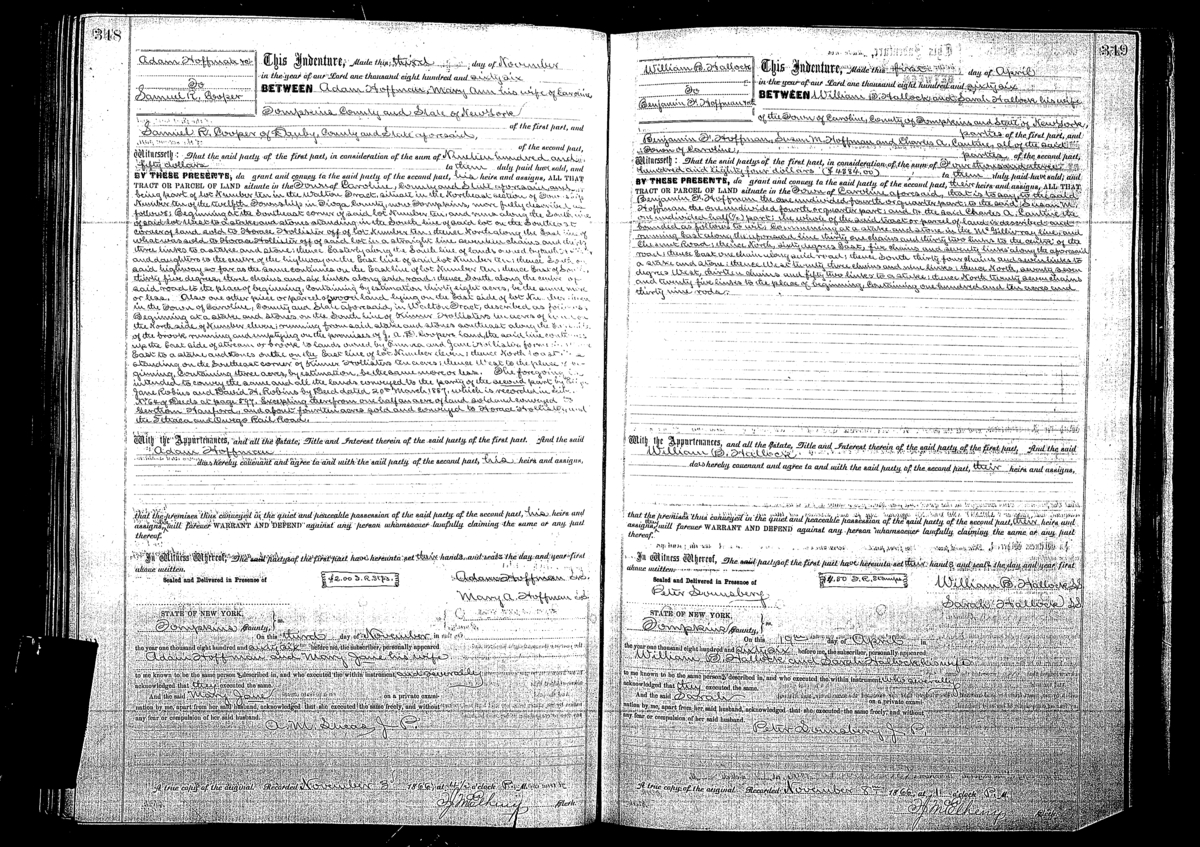 348
Adam Hoffman &c
To
Samuel R. Cooper
This Indenture, Made this third day of November
in the year of our Lord one thousand eight hundred and sixty six
BETWEEN Adam Hoffman, Mary Ann his wife of Caroline
Tompkins County and State of New York
of the first part, and
Samuel R. Cooper of Danby, County and State aforesaid,
of the second part,
Witnesseth: That the said party of the first part, in consideration of the sum of Nineteen hundred and
fifty dollars to them duly paid have sold, and
BY THESE PRESENTS, do grant and convey to the said party of the second part, his heirs and assigns, ALL THAT
TRACT OR PARCEL OF LAND situate in the Town of Caroline, County and State aforesaid, and
being part of Lot Number Ten in the Walton Tract, situate in the Northeast section of Township
Number Ten of the twelfth Township in Tioga County now Tompkins, more fully described as
follows: Beginning at the Southeast corner of said lot Number Ten and runs along the South line
of said lot West to Stake and stones standing in the South line of said lot on the Southeast
corner of land sold to Horace Hollister off of said lot Number Ten; thence North along the East line of
what was sold to Horace Hollister off of said lot in a straight line seventeen chains and thirty
three links to a stake and stone; thence Easterly along South line of lands owned by
and daughters to the centre of the highway on the East line of said lot Number Ten; thence South on
said highway so far as the same continues on the East line of lot Number Ten; thence East of South
thirty five degrees, three chains and six links along said road; thence South along the centre of
said road to the place of beginning, Containing by estimation thirty eight acres, be the same more
or less. Also one other piece or parcel of land lying on the East side of lot No. eleven
in the Town of Caroline, County and State aforesaid, in Walton Tract, described as follows:
Beginning at a stake and stones on the South line of Kinner Hollisters ten acres of land on
the North side of Number eleven; running from said stake and stones southeast along the
of the brook running and emptying on the premises of J. A. D. Coopers land, the said line continues
up the East side of stream or brook to lands owned by and Jane Hollister
East to a stake and stones on the East line of lot Number eleven; thence North to a stake
standing on the Southeast corner of Kinner Hollisters ten acres; thence West to the place of be-
ginning, Containing three acres, by estimation, be the same more or less. The foregoing is
intended to convey the same and all the lands conveyed to the party of the second part by
Jane Robins and David H. Robins by Deed dated 20th March 1857, which is recorded in Lib
No. 62 of Deeds at page 597. Excepting therefrom one half an acre of land sold and conveyed to
Gertson Hanford, and about fourteen acres sold and conveyed to Horace Hollister, and
the Ithaca and Owego Rail Road.
With the Appurtenances, and all the Estate, Title and Interest therein of the said party of the first part. And the said
Adam Hoffman
does hereby covenant and agree to and with the said party of the second part, his heirs and assigns,
that the premises thus conveyed in the quiet and peaceable possession of the said party of the second part, his heirs and
assigns, will forever WARRANT AND DEFEND against any person whomsoever lawfully claiming the same or any part
thereof.
In Witness Whereof, The said party of the first part have hereunto set their hands and seals the day and year first
above written.
Sealed and Delivered in Presence of
$2.00 I.R. Stps.
Adam Hoffman L.S.
Mary A. Hoffman L.S.
STATE OF NEW YORK,
Tompkins County, ss
On this third day of November in
the year one thousand eight hundred and sixty six before me, the subscriber, personally appeared
Adam Hoffman and Mary Jane his wife
to me known to be the same persons described in, and who executed the within instrument and severally
acknowledged that they the same.
And the said Mary Jane on a private exami-
nation by me, apart from her said husband, acknowledged that she executed the same freely, and without
any fear or compulsion of her said husband.
A. M. Lucas J. P.
A true copy of the original. Recorded November 8th 1866, at 4 1/2 o'clock P. M.
Clerk.
349
William B. Hallock
To
Benjamin F. Hoffman &c
This Indenture, Made this first day of April
in the year of our Lord one thousand eight hundred and sixty six
BETWEEN William B. Hallock and Sarah Hallock his wife
of the Town of Caroline, County of Tompkins and State of New York,
parties of the first part, and
Benjamin F. Hoffman, Susan M. Hoffman and Charles A. Cantine, all of the said
Town of Caroline, parties of the second part,
Witnesseth: That the said partys of the first part, in consideration of the sum of Four thousand three
hundred and eighty four dollars ($4384.00) to them duly paid have and
BY THESE PRESENTS, do grant and convey to the said party of the second part, their heirs and assigns, ALL THAT
TRACT OR PARCEL OF LAND situate in the Town of Caroline aforesaid, that is to say to the said
Benjamin F. Hoffman the one undivided fourth or quarter part; to the said Susan M.
Hoffman the one undivided fourth or quarter part; and to the said Charles A. Cantine the
one undivided half (½) part; the whole of the said tract or parcel of land is described and
bounded as follows to wit: Commencing at a stake and stone in the McWilliams line, and
running East along the aforesaid line thirty one chains and thirty two links to the center of the
road; thence North, sixty degrees East, five chains and seventy links along the aforesaid
road; thence East one chain along said road; thence South thirty four chains and seven links to
a stake and stone; thence West twenty three chains and nine links; thence North, seventy seven
degrees West, thirteen chains and fifty two links to a stake; thence North twenty seven chains
and twenty five links to the place of beginning. Containing one hundred and ten acres and
thirty nine rods.
With the Appurtenances, and all the Estate, Title and Interest therein of the said party of the first part. And the said
William B. Hallock
does hereby covenant and agree to and with the said party of the second part, their heirs and assigns,
that the premises thus conveyed in the quiet and peaceable possession of the said party of the second part, their heirs and
assigns, will forever WARRANT AND DEFEND against any person whomsoever lawfully claiming the same or any part
thereof.
In Witness Whereof, The said party of the first part have hereunto set their hands and seals the day and year first
above written.
Sealed and Delivered in Presence of
Peter Lounsbery
$4.50 I.R. Stamps
William B. Hallock L.S.
Sarah Hallock L.S.
STATE OF NEW YORK,
Tompkins County, ss
On this 19th day of April in
the year one thousand eight hundred and sixty six before me, the subscriber, personally appeared
William B. Hallock and Sarah Hallock his wife
to me known to be the same persons described in, and who executed the within instrument who severally
acknowledged that they executed the same.
And the said Sarah on a private exami-
nation by me, apart from her said husband, acknowledged that she executed the same freely, and without
any fear or compulsion of her said husband.
Peter Lounsbery J. P.
A true copy of the original. Recorded November 8th 1866, at 1 o'clock P. M.
Clerk